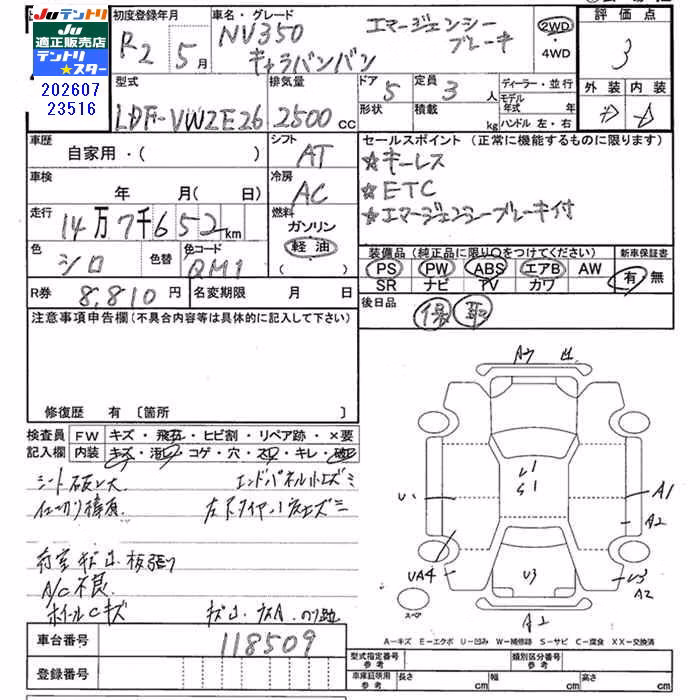 JU テントリ
JU適正販売店
テントリ
★スター
202607
23516
初度登録年月
R2 5月
車名・グレード
NV350
キャラバンバン
エマージェンシー
ブレーキ
2WD
4WD
評価点
3
外装 内装
型式
LDF-VW2E26
排気量
2500cc
ドア 5
形状
定員 3人
積載 kg
ディーラー・並行
モデル年式 年
ハンドル 左・右
車歴
自家用・( )
シフト
AT
セールスポイント (正常に機能するものに限ります)
☆キーレス
☆ETC
☆エマージェンシーブレーキ付
車検
年 月(日)
冷房
AC
走行
14万7千652km
燃料
ガソリン
軽油
( )
色
シロ
色替
色コード
QM1
装備品 (純正品に限り○をつけてください)
新車保証書
PS PW ABS エアB AW
SR ナビ TV カワ
有 無
R券 8,810円
名変期限 月 日
後日品
保 取
注意事項申告欄 (不具合内容等は具体的に記入して下さい)
修復歴 有 [箇所 ]
検査員
記入欄
FW キズ・飛石・ヒビ割・リペア跡・×要
内装 キズ・汚レ・コゲ・穴・スレ・キレ・破レ
シート破レ大
エンドパネル小キズミ
荷室キズ凹板張り
A/C不良
ホイールCキズ
A7
U1
S1
U1
A1
A2
UA4
U3
U3
A2
スペア
A2
A－キズ E－エクボ U－凹み W－補修跡 S－サビ C－腐食 XX－交換済
車台番号
118509
登録番号
型式指定番号
参考
類別区分番号
参考
車庫証明用
参考
長さ cm
幅 cm
高さ cm